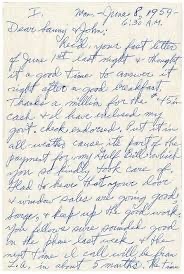 I
Mon - June 8, 1959
6:30 A.M.
Dear Sanny & John:
Rec'd. your fast letter
of June 1st last night & thought
it a good time to answer it
right after a good breakfast.
Thanks a million for the $45
cash & I have indorsed my
govt. check endorsed. But it in
all with cause its part of the
payment for my Gulf Bill which
you so kindly took care of.
Glad to hear that your dove
& window sales are going good
Songe, & keep up the good work.
You fellows sure sounded good
on the phone last week & the
next time I call will be from
L.A., in about 5 months. This